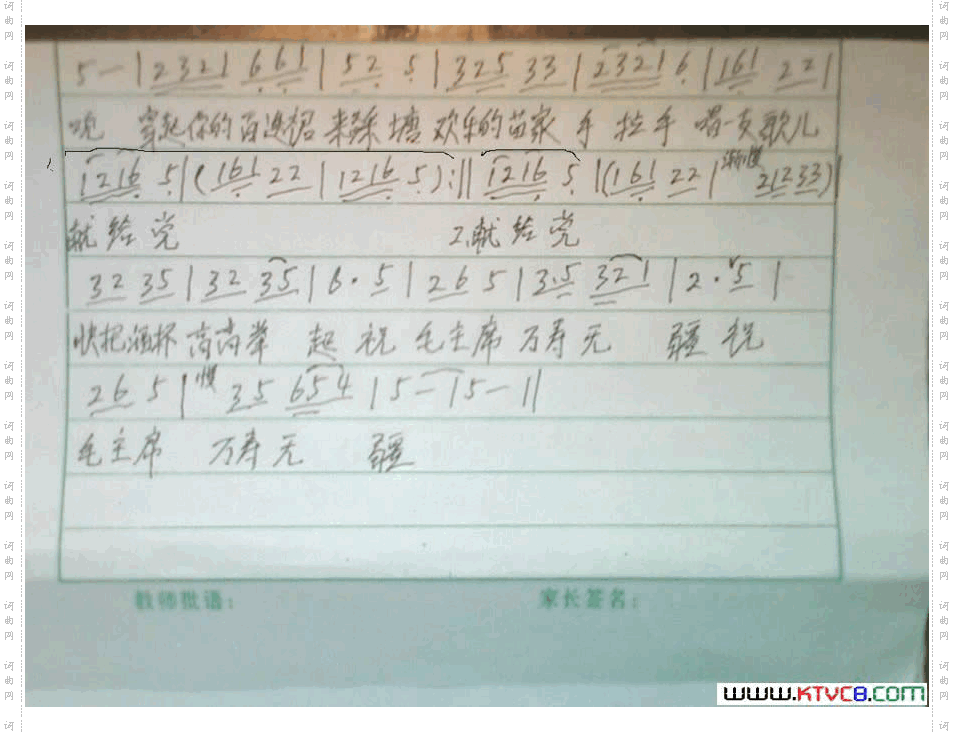 5 — | 2321 661 | 52 5 | 325 33 | 2321 6 | 161 22 |
呢 穿起你的百边裙 来采塘 欢乐的苗家 手拉手 唱一支歌儿
1216 5 | ( 161 22 | 1216 5 ) :|| 1216 5 | ( 161 22 | 渐慢 21233 ) |
献给党 2.献给党
3235 | 32 35 | 6 · 5 | 26 5 | 3·5 321 | 2 · 5 |
快把酒杯高高举起 祝毛主席万寿无疆 祝
26 5 | 慢 35 654 | 5 — | 5 — ||
毛主席 万寿无疆
教师批语: 家长签名:
www.KTVC8.com
词曲网